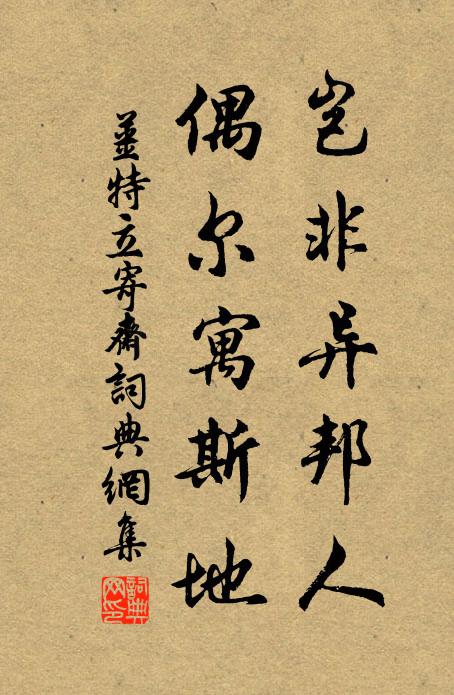 岂非异邦人
偶尔寓斯地
姜特立寄斋詞典網集
詞典网印